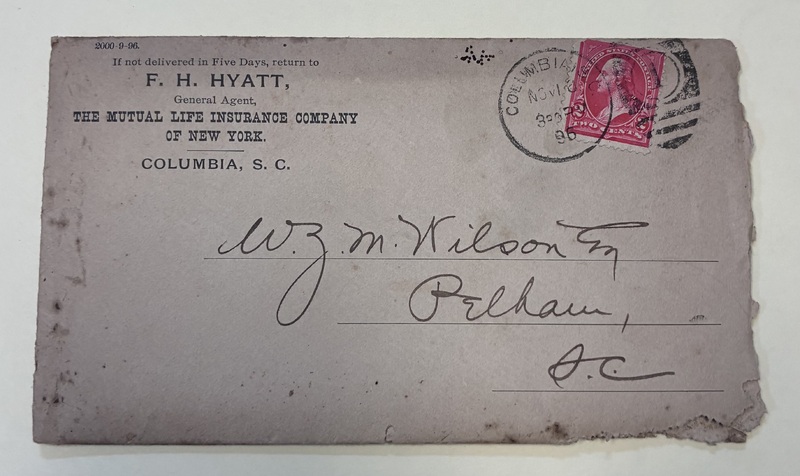 2000-9-96.
If not delivered in Five Days, return to
F. H. HYATT,
General Agent,
THE MUTUAL LIFE INSURANCE COMPANY
OF NEW YORK.
COLUMBIA, S. C.
COLUMBIA
NOV
96
TWO CENTS
W. Z. M. Wilson Esq
Pelham,
S.C.